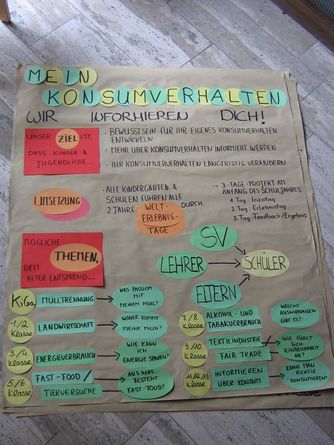 MEIN
KONSUMVERHALTEN
WIR INFORMIEREN DICH!
UNSER ZIEL IST,
DASS KINDER &
JUGENDLICHE...
- BEWUSSTSEIN FÜR IHR EIGENES KONSUMVERHALTEN
ENTWICKELN
- MEHR ÜBER KONSUMVERHALTEN INFORMIERT WERDEN
- IHR KONSUMVERHALTEN LANGFRISTIG VERÄNDERN
UMSETZUNG
- ALLE KINDERGÄRTEN &
SCHULEN FÜHREN ALLE
2 JAHRE WELT-
ERLEBNIS-
TAGE DURCH
→ 3-TAGE-PROJEKT AM
ANFANG DES SCHULJAHRES
1. Tag Infotag
2. Tag Erlebnistag
3. Tag Feedback/Ergebnis
MÖGLICHE
THEMEN,
DEM ALTER ENTSPREND...
SV
LEHRER
SCHÜLER
ELTERN
KiGa
MÜLLTRENNUNG
WAS PASSIERT MIT
MEINEM MÜLL?
1/2
Klasse
LANDWIRTSCHAFT
WOHER KOMMT
MEINE MILCH?
3/4
Klasse
ENERGIEVERBRAUCH
WIE KANN ICH
ENERGIE SPAREN?
5/6
Klasse
FAST-FOOD /
TIERVERSUCHE
AUS WAS
BESTEHT
FAST-FOOD?
7/8
Klasse
ALKOHOL- UND
TABAKVERBRAUCH
WELCHE
AUSWIRKUNGEN
GIBT ES?
9/10
Klasse
TEXTILINDUSTRIE
FAIR TRADE
WIE FÜHLT SICH
KINDERARBEIT
AN?
11/12/13
Klasse
INFORMIEREN
ÜBER KONSUM
KANN MAN
RICHTIG
KONSUMIEREN?